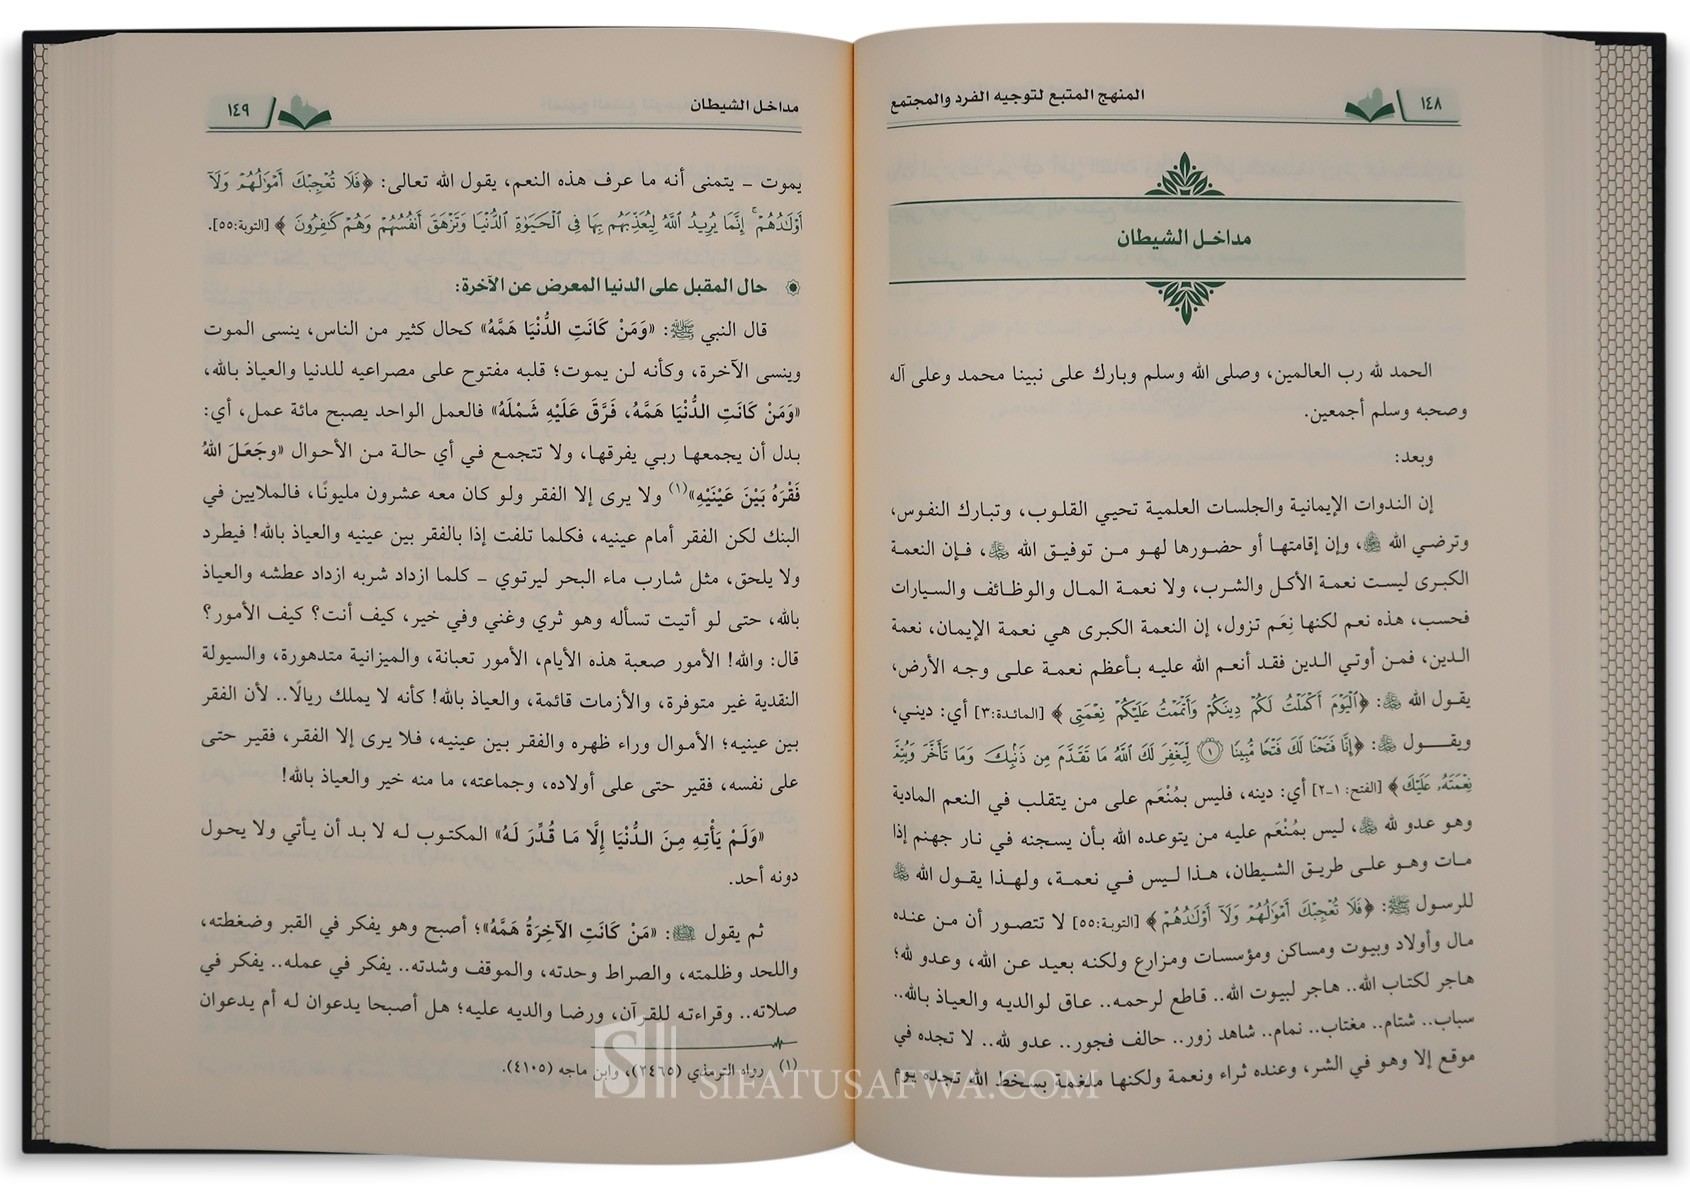 ١٤٨
المنهج المتبع لتوجيه الفرد والمجتمع
مداخل الشيطان
الحمد لله رب العالمين، وصلى الله وسلم وبارك على نبينا محمد وعلى آله
وصحبه وسلم أجمعين.
وبعد:
إن الندوات الإيمانية والجلسات العلمية تحيي القلوب، وتبارك النفوس،
وترضي الله ، وإن إقامتها أو حضورها لهو من توفيق الله ، فإن النعمة
الكبرى ليست نعمة الأكل والشرب، ولا نعمة المال والوظائف والسيارات
فحسب، هذه نعم لكنها نِعَم تزول، إن النعمة الكبرى هي نعمة الإيمان، نعمة
الدين، فمن أوتي الدين فقد أنعم الله عليه بأعظم نعمة على وجه الأرض،
يقول الله : ﴿ٱلْيَوْمَ أَكْمَلْتُ لَكُمْ دِينَكُمْ وَأَتْمَمْتُ عَلَيْكُمْ نِعْمَتِى﴾ [المائدة:٣] أي: ديني،
ويقول : ﴿إِنَّا فَتَحْنَا لَكَ فَتْحًا مُّبِينًا ۝١ لِّيَغْفِرَ لَكَ ٱللَّهُ مَا تَقَدَّمَ مِن ذَنۢبِكَ وَمَا تَأَخَّرَ وَيُتِمَّ
نِعْمَتَهُۥ عَلَيْكَ﴾ [الفتح: ١-٢] أي: دينه، فليس بمُنْعَم على من يتقلب في النعم المادية
وهو عدو لله ، ليس بمُنْعَم عليه من يتوعده الله بأن يسجنه في نار جهنم إذا
مات وهو على طريق الشيطان، هذا ليس في نعمة، ولهذا يقول الله
للرسول ﷺ: ﴿فَلَا تُعْجِبْكَ أَمْوَٰلُهُمْ وَلَآ أَوْلَـٰدُهُمْ﴾ [التوبة:٥٥] لا تتصور أن من عنده
مال وأولاد وبيوت ومساكن ومؤسسات ومزارع ولكنه بعيد عن الله، وعدو لله؛
هاجر لكتاب الله.. هاجر لبيوت الله.. قاطع لرحمه.. عاق لوالديه والعياذ بالله..
سباب.. شتام.. مغتاب.. نمام.. شاهد زور.. حالف فجور.. عدو لله.. لا تجده في
موقع إلا وهو في الشر، وعنده ثراء ونعمة ولكنها ملغمة بسخط الله تجده يوم
مداخل الشيطان
١٤٩
يموت - يتمنى أنه ما عرف هذه النعم، يقول الله تعالى: ﴿فَلَا تُعْجِبْكَ أَمْوَٰلُهُمْ وَلَآ
أَوْلَـٰدُهُمْ ۚ إِنَّمَا يُرِيدُ ٱللَّهُ لِيُعَذِّبَهُم بِهَا فِى ٱلْحَيَوٰةِ ٱلدُّنْيَا وَتَزْهَقَ أَنفُسُهُمْ وَهُمْ كَـٰفِرُونَ﴾ [التوبة:٥٥].
حال المقبل على الدنيا المعرض عن الآخرة:
قال النبي ﷺ: «وَمَنْ كَانَتِ الدُّنْيَا هَمَّهُ» كحال كثير من الناس، ينسى الموت
وينسى الآخرة، وكأنه لن يموت؛ قلبه مفتوح على مصراعيه للدنيا والعياذ بالله،
«وَمَنْ كَانَتِ الدُّنْيَا هَمَّهُ، فَرَّقَ عَلَيْهِ شَمْلَهُ» فالعمل الواحد يصبح مائة عمل، أي:
بدل أن يجمعها ربي يفرقها، ولا تتجمع في أي حالة من الأحوال «وجَعَلَ اللهُ
فَقْرَهُ بَيْنَ عَيْنَيْهِ»(١) ولا يرى إلا الفقر ولو كان معه عشرون مليونًا، فالملايين في
البنك لكن الفقر أمام عينيه، فكلما تلفت إذا بالفقر بين عينيه والعياذ بالله! فيطرد
ولا يلحق، مثل شارب ماء البحر ليرتوي - كلما ازداد شربه ازداد عطشه والعياذ
بالله، حتى لو أتيت تسأله وهو ثري وغني وفي خير، كيف أنت؟ كيف الأمور؟
قال: والله! الأمور صعبة هذه الأيام، الأمور تعبانة، والميزانية متدهورة، والسيولة
النقدية غير متوفرة، والأزمات قائمة، والعياذ بالله! كأنه لا يملك ريالًا.. لأن الفقر
بين عينيه؛ الأموال وراء ظهره والفقر بين عينيه، فلا يرى إلا الفقر، فقير حتى
على نفسه، فقير حتى على أولاده، وجماعته، ما منه خير والعياذ بالله!
«وَلَمْ يَأْتِهِ مِنَ الدُّنْيَا إِلَّا مَا قُدِّرَ لَهُ» المكتوب له لا بد أن يأتي ولا يحول
دونه أحد.
ثم يقول ﷺ: «مَنْ كَانَتِ الآخِرَةُ هَمَّهُ»؛ أصبح وهو يفكر في القبر وضغطته،
واللحد وظلمته، والصراط وحدته، والموقف وشدته.. يفكر في عمله.. يفكر في
صلاته.. وقراءته للقرآن، ورضا والديه عليه؛ هل أصبحا يدعوان له أم يدعوان
(١) رواه الترمذي (٢٤٦٥)، وابن ماجه (٤١٠٥).
SIFATUSAFWA.COM